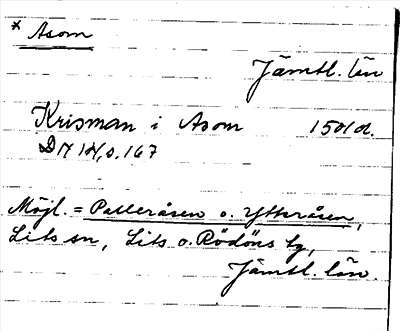 * Åsom
Jämtl. län
Krisman i Åsom 1501 d.
DN 14, s. 167
Möjl. = Palleråsen o. Ytteråsen,
Lits sn, Lits o. Rödöns tg,
Jämtl. län.